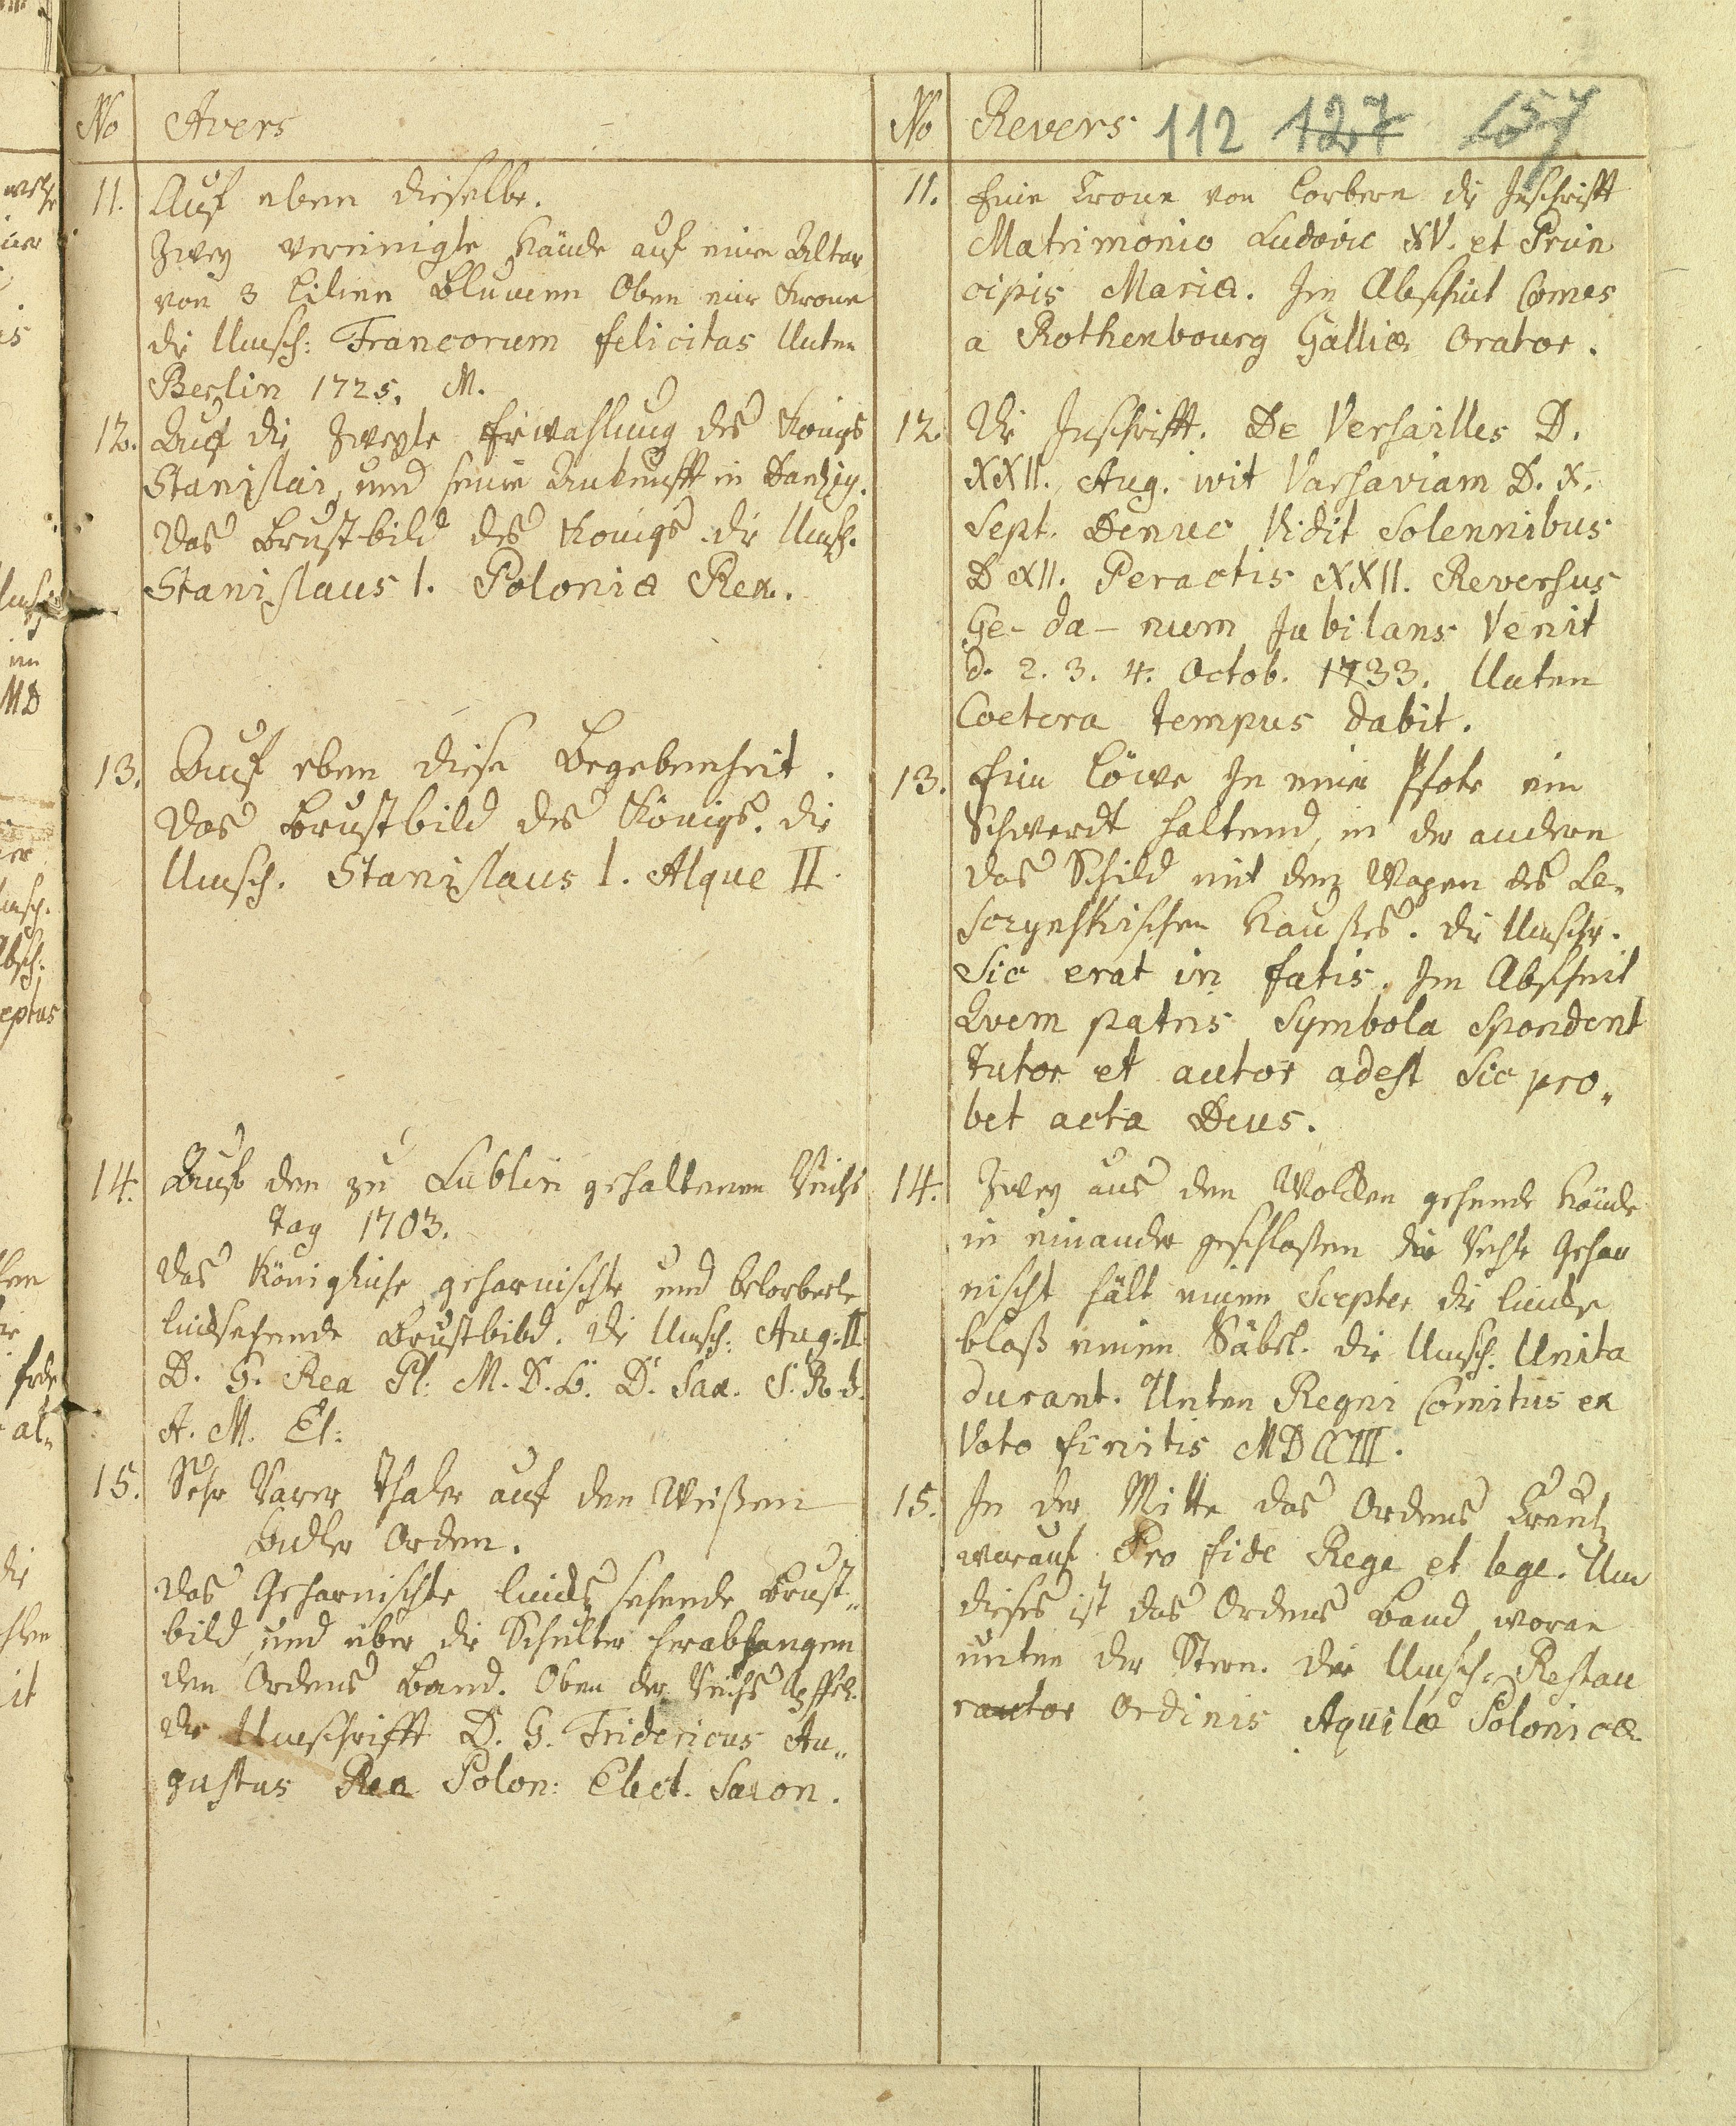 No Avers
11. Auf eben dieselbe.
Zwey vereinigte Hände auf einen Altar
von 3 Lilien Blumen Oben eine Krone
die Umsch: Francorum felicitas Unten
Berlin 1725. M.
12. Auf die Zweyte Erwahlung des Konigs
Stanislai, und seine Ankunfft in Dantzig.
Das Brustbild des Konigs die Umsch.
Stanislaus I. Poloniæ Rex.
13. Auf eben diese Begebenheit.
Das Brustbild des Königs. die
Umsch. Stanislaus I. Alque II.
14. Auf den zu Lublin gehaltenen Reichs
Tag 1703.
Das Königliche geharnischte und belorberte
linksehende Brustbild. die Umsch: Aug: II
D. G. Rex Pl: M. D. L. D. Sax. S. R. I.
A. M. El:
15. Sehr Rarer Thaler auf den Weißen
Adler Orden.
Das Geharnischte links sehende Brust„
bild, und über die Schulter herabhangen
den Ordens Band. Oben der Reichs Apffel.
die Umschrifft D. G. Fridericus Au„
gustus Rex Polon: Elect. Saxon.
No Revers 112 127 157
11. Eine Crone von Lorbern die Inschrifft
Matrimonio Ludovic XV. et Prin
cipis Mariæ. Im Abschnit Comes
a Rothenbourg Galliæ Orator.
12. Die Inschrifft. De Versailles D.
XXII. Aug. ivit Varsaviam D. X.
Sept. Denuo Vidit Solennibus
D XII. Peractis XXII. Reversus
Ge-da-num Jubilans Venit
d. 2. 3. 4. Octob. 1733. Unten
Coetera tempus dabit.
13. Ein Löwe In einer Pfote ein
Schwerdt haltend, in der andern
das Schild mit dem Wapen des Le„
sczynskischen Haußes. die Umschr.
Sic erat in fatis. Im Abschnit
Quem patris Symbola Spondent
tutor et autor adest Sic pro„
bet acta Deus.
14. Zwey aus den Wolcken gehende Hände
in einander geschloßen die Rechte Gehar
nischt hält einen Scepter die lincke
bloß einen Säbel. die Umsch. Unita
durant. Unten Regni Comitiis ex
Voto finitis MDCCIII.
15. In der Mitte das Ordens Creutz
worauf Pro fide Rege et lege. Um
dieses ist das Ordens Band, woran
unten der Stern. die Umsch. Restau
rautor Ordinis Aquilæ Polonicæ